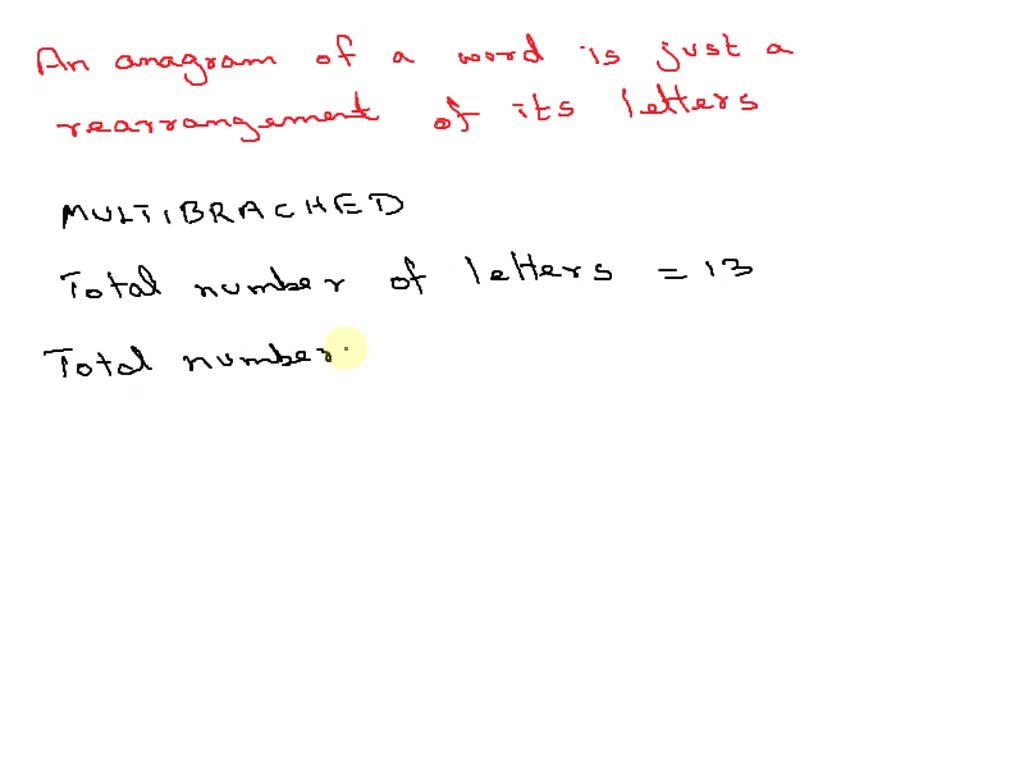 An anagram of a word is just a
rearrangement of its letters
MULTIBRACHED
Total number of letters = 13
Total number